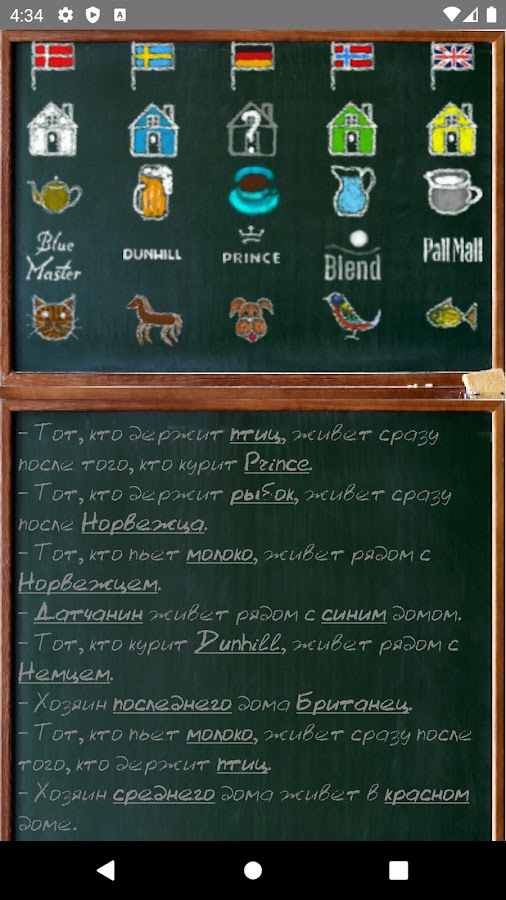 4:34
A
?
Blue
Master
DUNHILL
PRINCE
Blend
Pall Mall
- Тот, кто держит птиц, живет сразу
после того, кто курит Prince.
- Тот, кто держит рыбок, живет сразу
после Норвежца.
- Тот, кто пьет молоко, живет рядом с
Норвежцем.
- Датчанин живет рядом с синим домом.
- Тот, кто курит Dunhill, живет рядом с
Немцем.
- Хозяин последнего дома Британец.
- Тот, кто пьет молоко, живет сразу после
того, кто держит птиц.
- Хозяин среднего дома живет в красном
доме.